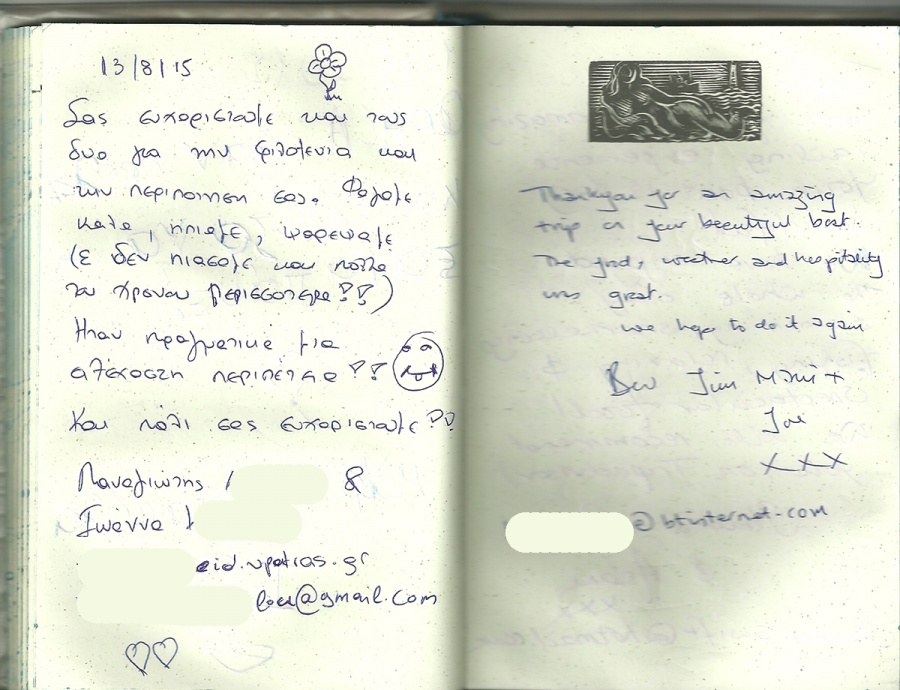 13/8/15
Σας ευχαριστούμε και τους
δυο για την φιλοξενία και
την περιποίηση σας. Φάγαμε
καλά, ήπιαμε, ψαρέψαμε
(ε δεν πιάσαμε και πολλά
του χρόνου περισσότερα!!)
Ήταν πραγματικά μια
αξέχαστη περιπέτεια!!
Και πάλι σας ευχαριστούμε!!
Παναγιώτης / &
Ιωάννα /
eid.upatras.gr
@gmail.com
Thankyou for an amazing
trip on your beautiful boat.
The food, weather and hospitality
was great.
we hope to do it again
Bev Jim Mimi +
Joe
xxx
@btinternet.com